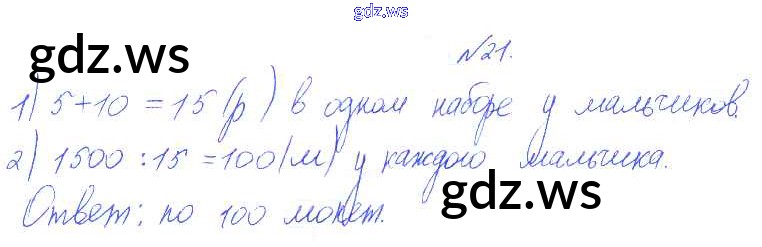 gdz.ws
gdz.ws
№21.
1) 5+10 = 15 (р) в одном наборе у мальчиков.
2) 1500 : 15 = 100 (м) у каждого мальчика.
gdz.ws
Ответ: по 100 монет.